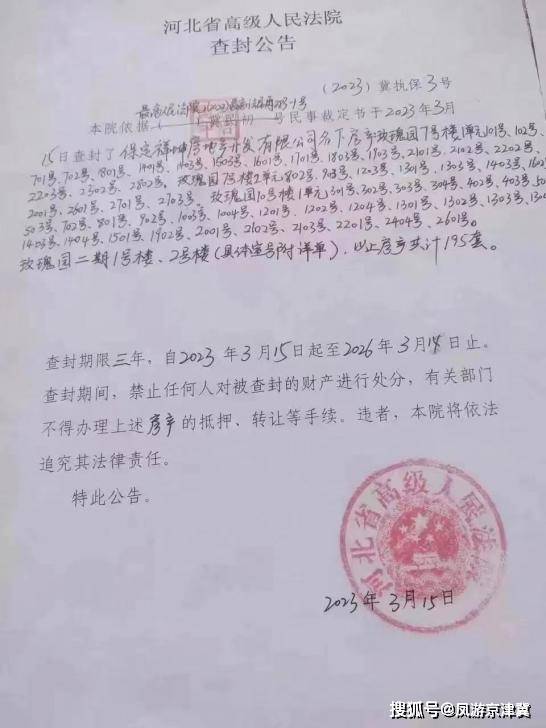 河北省高级人民法院
查封公告
(2023)冀执保3号
本院依据 号民事裁定书于2023年3月
15日查封了保定 房地产开发有限公司名下房产玫瑰园7号楼1单元101号、102号、
701号、702号、801号、 1503号、1601号、1701号、1803号、1903号、2101号、2102号、2202号、
2203号、2302号、2802号、玫瑰园7号楼2单元802号、 1203号、1301号、1303号、1403号、
2001号、2601号、2701号、2703号。玫瑰园10号楼1单元301号、302号、303号、304号、402号、403号、
503号、702号、801号、902号、1003号、1004号、1201号、1202号、1204号、1301号、1302号、1303号、
1403号、1404号、1501号、1902号、2001号、2102号、2103号、2201号、2404号、2601号。
玫瑰园二期1号楼、2号楼(具体室号附详单),以上房产共计195套。
查封期限三年,自2023年3月15日起至2026年3月14日止。
查封期间,禁止任何人对被查封的财产进行处分,有关部门
不得办理上述房产的抵押、转让等手续。违者,本院将依法
追究其法律责任。
特此公告。
河北省高级人民法院
2023年3月15日
搜狐号@凤游京津冀